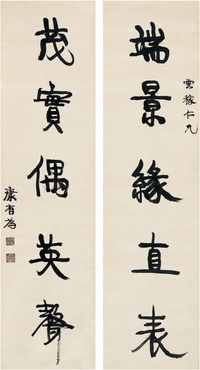 雲稼仁兄
端景緣直表
茂實偶英聲
康有為